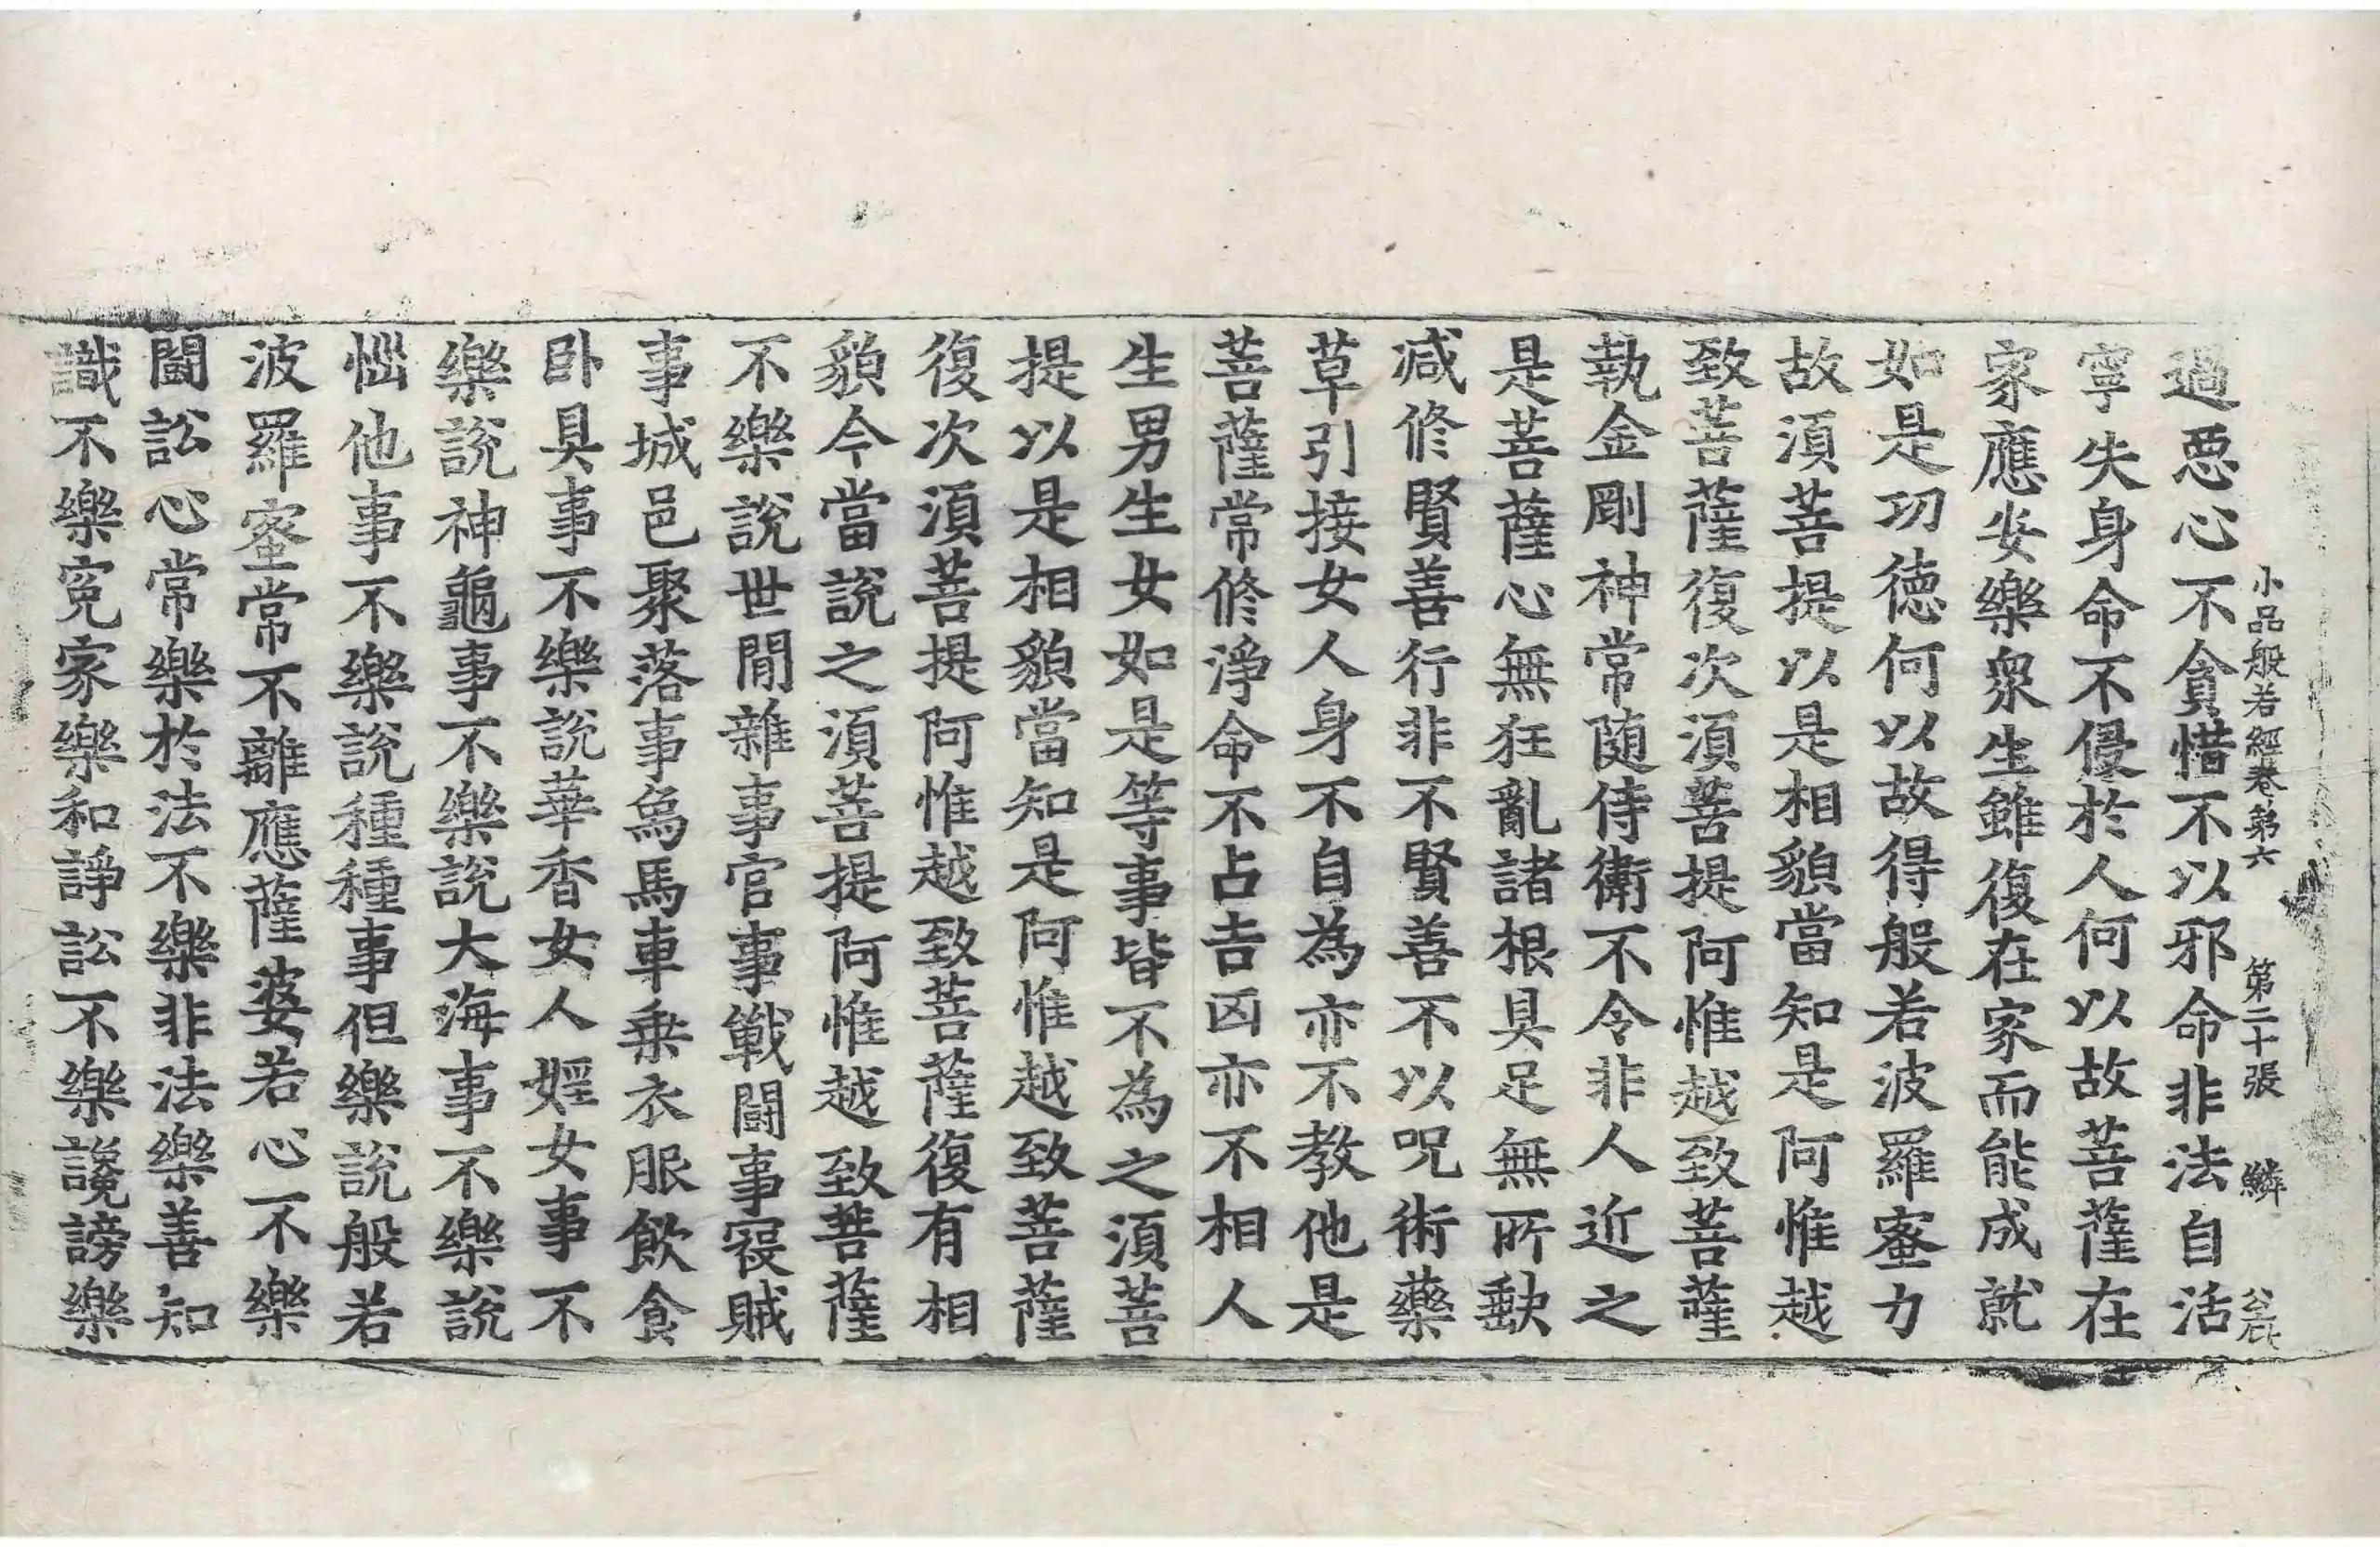 小品般若經卷第六 第二十張 鱗
過惡心不貪惜不以邪命非法自活
寧失身命不侵於人何以故菩薩在
家應安樂衆生雖復在家而能成就
如是功德何以故得般若波羅蜜力
故須菩提以是相貌當知是阿惟越
致菩薩復次須菩提阿惟越致菩薩
執金剛神常隨侍衛不令非人近之
是菩薩心無狂亂諸根具足無所缺
减修賢善行非不賢善不以呪術藥
草引接女人身不自為亦不教他是
菩薩常修淨命不占吉凶亦不相人
生男生女如是等事皆不為之須菩
提以是相貌當知是阿惟越致菩薩
復次須菩提阿惟越致菩薩復有相
貌今當說之須菩提阿惟越致菩薩
不樂說世閒雜事官事戰鬪事寇賊
事城邑聚落事烏馬車乗衣服飲食
卧具事不樂說華香女人婬女事不
樂說神龜事不樂說大海事不樂說
惱他事不樂說種種事但樂說般若
波羅蜜常不離應薩婆若心不樂
鬪訟心常樂於法不樂非法樂善知
識不樂寃家樂和諍訟不樂讒謗樂